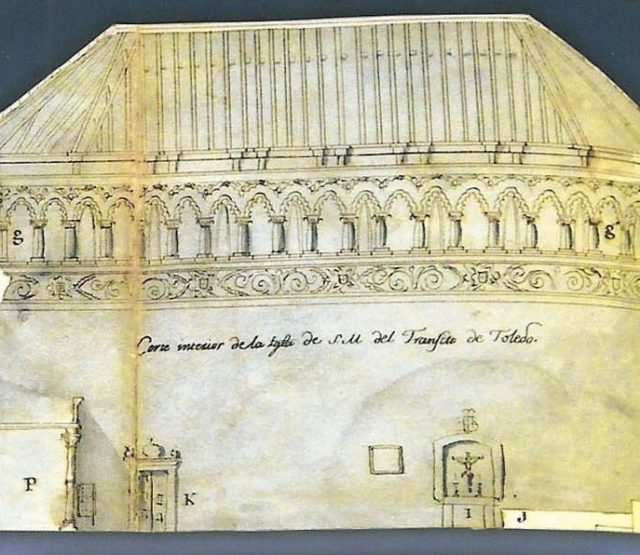 g g
Corte interior de la Iglª de S. M del Transito de Toledo.
P K I J